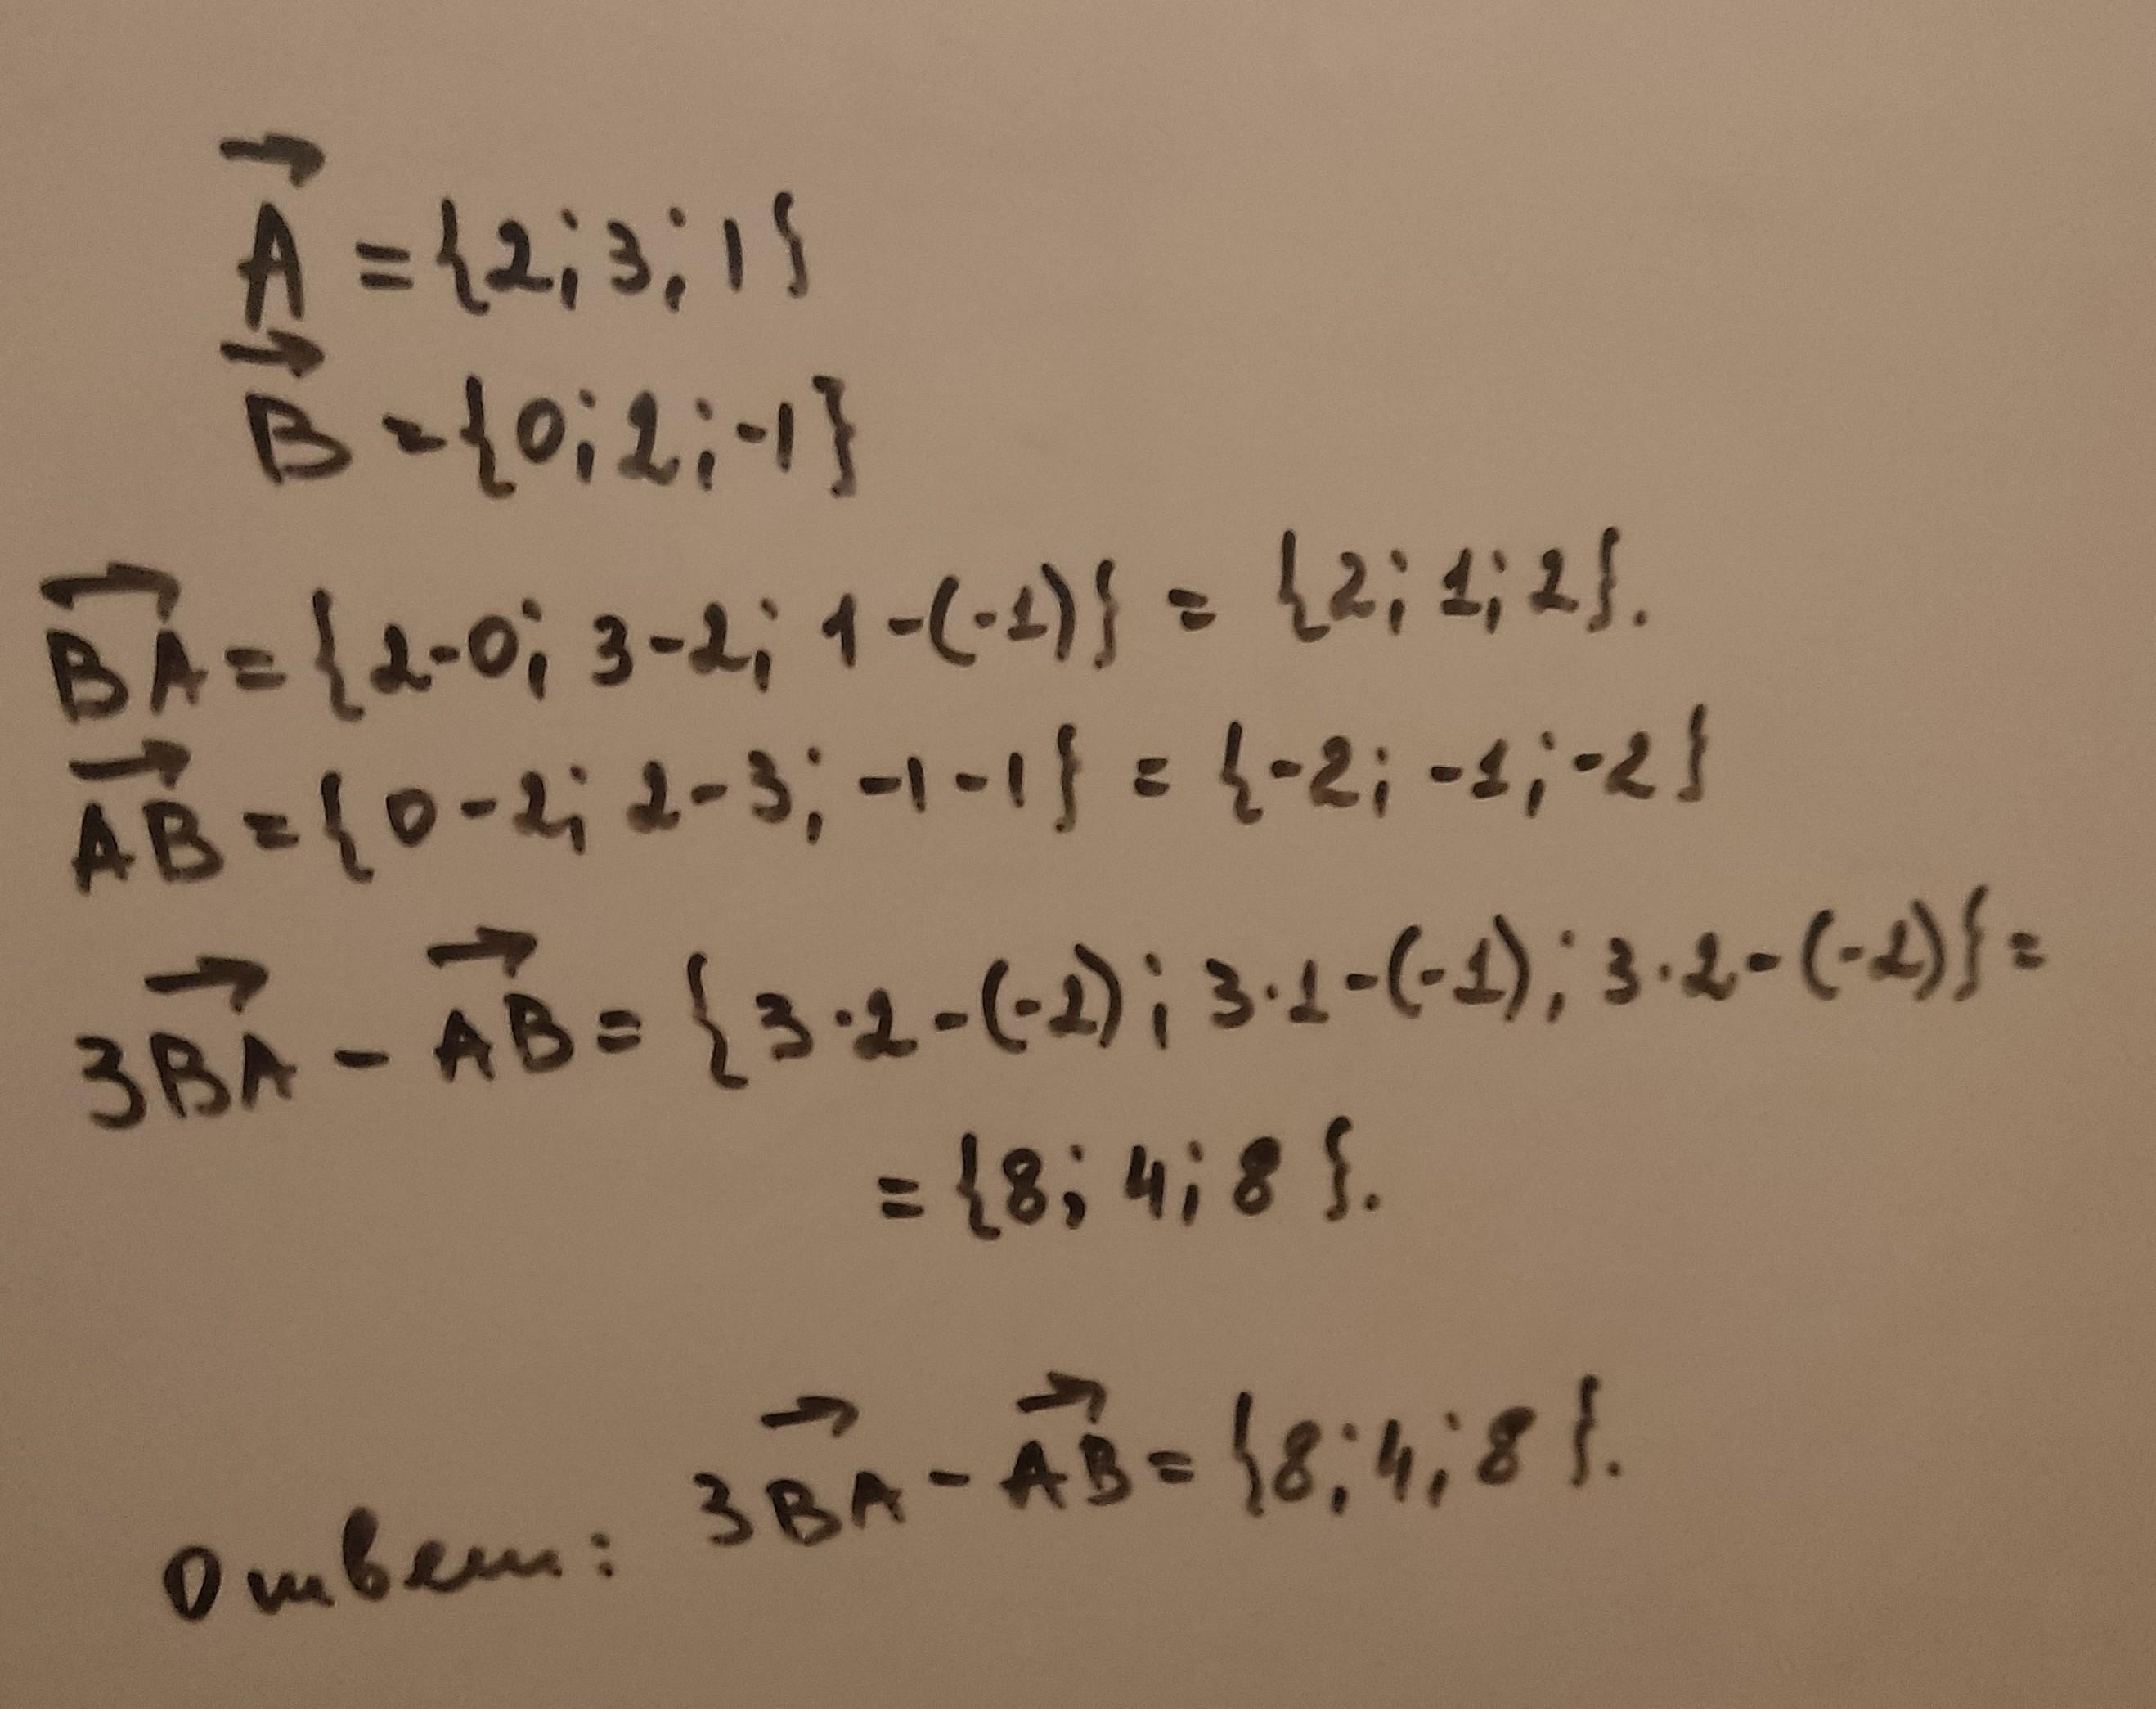 A⃗ = {2; 3; 1}
B⃗ = {0; 2; -1}
B⃗A⃗ = {2-0; 3-2; 1-(-1)} = {2; 1; 2}.
A⃗B⃗ = {0-2; 2-3; -1-1} = {-2; -1; -2}
3B⃗A⃗ - A⃗B⃗ = {3·2-(-2); 3·1-(-1); 3·2-(-2)} =
= {8; 4; 8}.
3B⃗A⃗ - A⃗B⃗ = {8; 4; 8}.
Ответ: